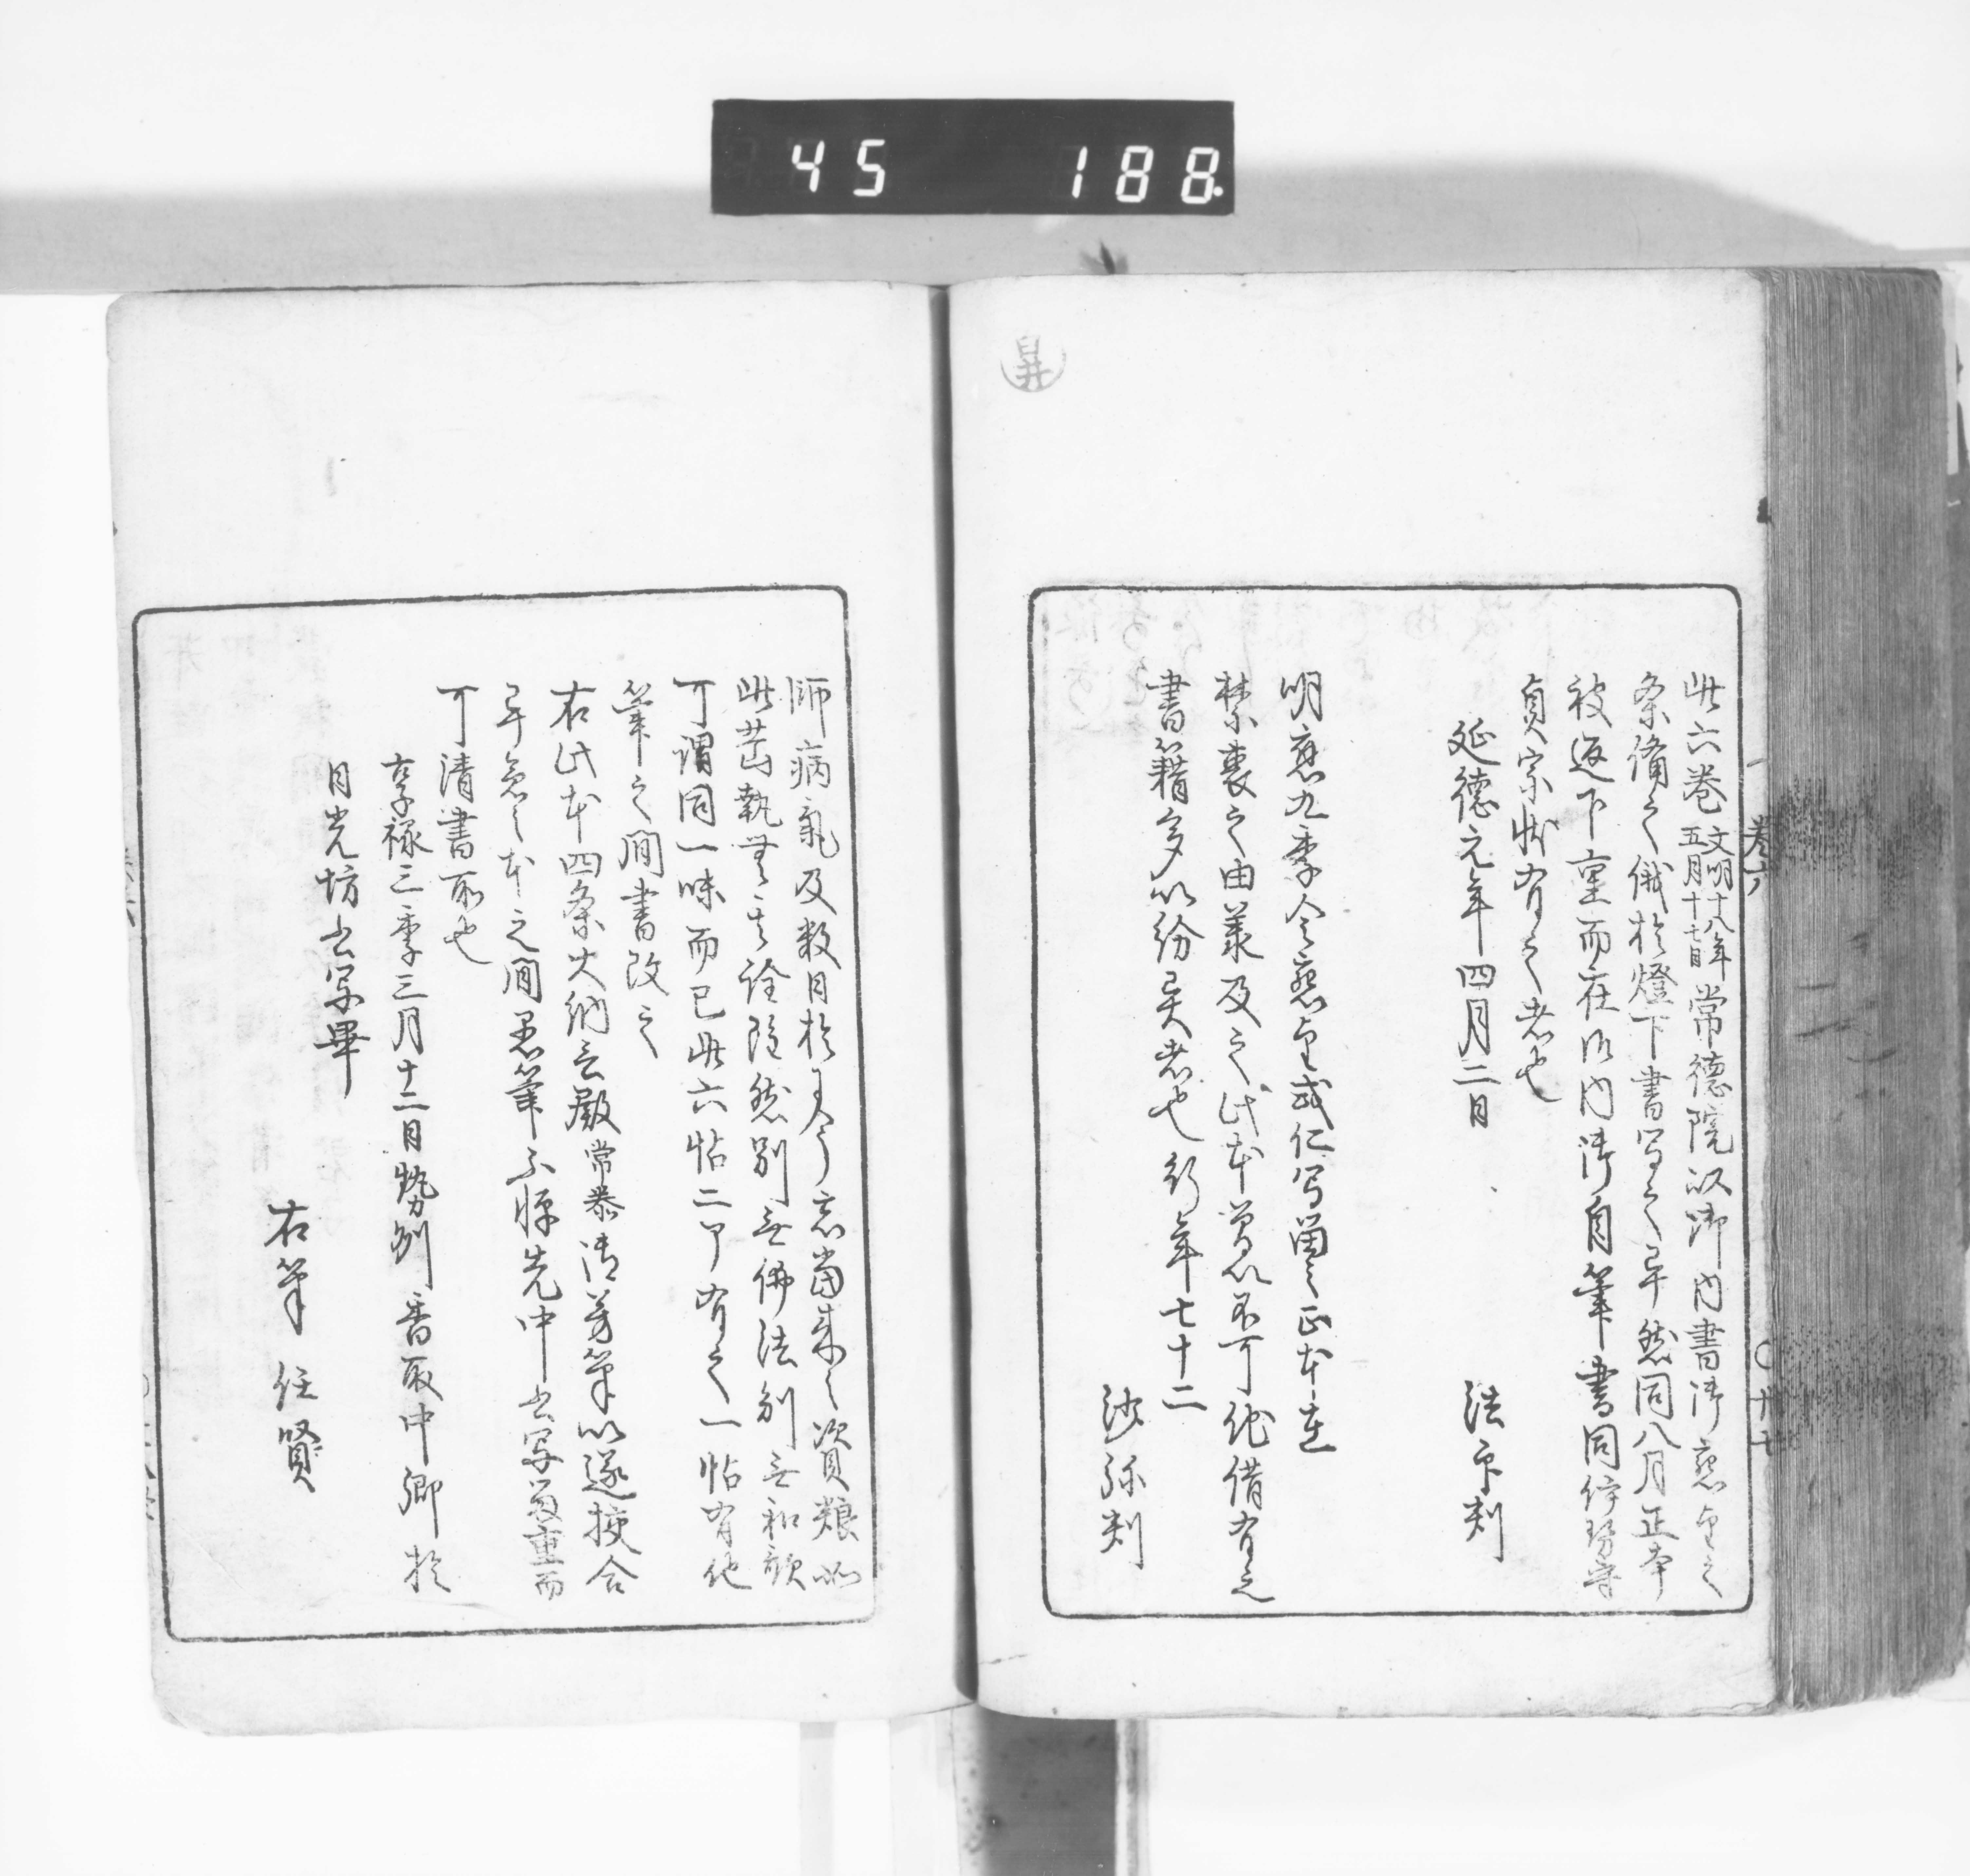 45 188
此六巻文明十八年五月十七日常徳院以御内書御懇望之
条備之俄於燈下書写之畢然同八月正本
被返下重而在御内御自筆書同伊勢守
貞宗状有之者也
延徳元年四月二日
法印判
明應九季今懇望或仁写留之正本在
禁裏之由兼及之此本曽以不可他借有之
書籍多以紛失者也行年七十二
沙弥判
巻六
師病氣及数月於于今 当来之資粮
此 執筆之詮 然別無佛法別無和歌
可謂同一味而已此六帖二 有之一帖有他
筆之間書改之
右此本四条大納言殿常恭御芳筆以遂挍合
畢急之本之間悪筆不憚先中書写 重而
可清書取也
享禄三季三月十二日勢州 香取中郷於
月光坊書写畢
右筆 任賢